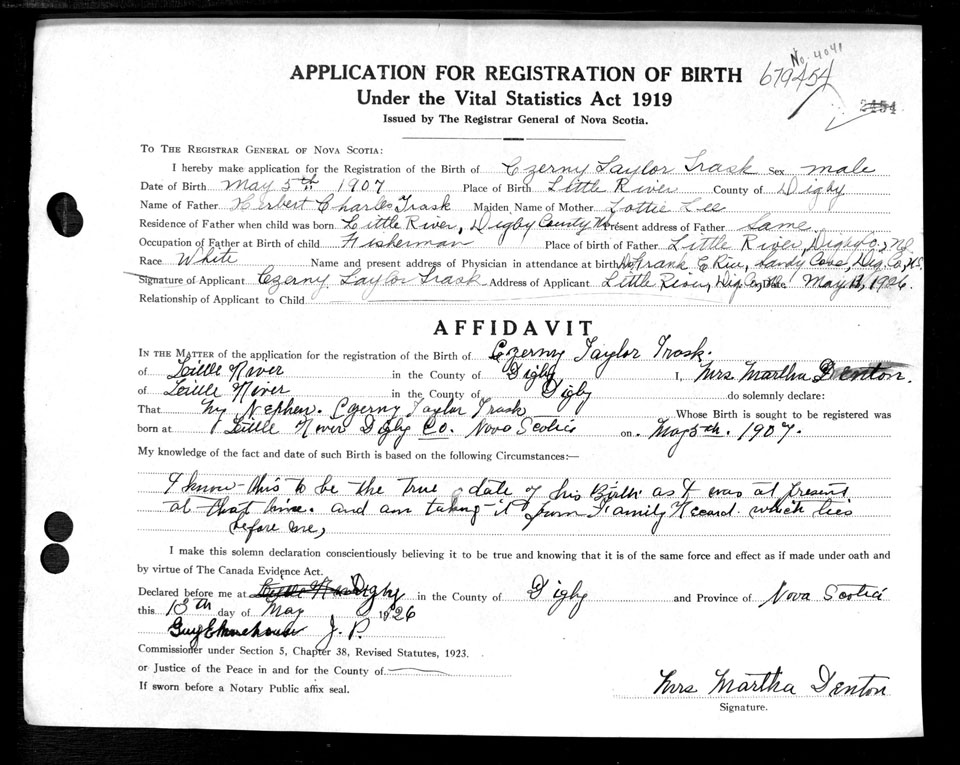 No. 4041
APPLICATION FOR REGISTRATION OF BIRTH
679454
Under the Vital Statistics Act 1919
2454
Issued by The Registrar General of Nova Scotia.
To The Registrar General of Nova Scotia:
I hereby make application for the Registration of the Birth of Czerny Taylor Trask Sex male
Date of Birth May 5th 1907 Place of Birth Little River County of Digby
Name of Father Herbert Charles Trask Maiden Name of Mother Lottie Lee
Residence of Father when child was born Little River, Digby County NS Present address of Father Same
Occupation of Father at Birth of child Fisherman Place of birth of Father Little River, Dig Co., NS
Race White Name and present address of Physician in attendance at birth Dr Frank E Rice, Sandy Cove, Dig. Co., N.S.
Signature of Applicant Czerny Taylor Trask Address of Applicant Little River, Dig. Co., Date May 1926.
Relationship of Applicant to Child
AFFIDAVIT
In the Matter of the application for the registration of the Birth of Czerny Taylor Trask.
of Little River in the County of Digby I, Mrs Martha Denton.
of Little River in the County of Digby do solemnly declare:
That My Nephew. Czerny Taylor Trask Whose Birth is sought to be registered was
born at Little River Digby Co. Nova Scotia on May 5th. 1907.
My knowledge of the fact and date of such Birth is based on the following Circumstances:—
I know this to be the true date of his Birth as I was at present
at that time. and am taking it from Family Record which lies
before me,
I make this solemn declaration conscientiously believing it to be true and knowing that it is of the same force and effect as if made under oath and
by virtue of The Canada Evidence Act.
Declared before me at Little River Digby in the County of Digby and Province of Nova Scotia
this 13th day of May 1926
J. P.
Commissioner under Section 5, Chapter 38, Revised Statutes, 1923.
or Justice of the Peace in and for the County of
If sworn before a Notary Public affix seal.
Mrs Martha Denton
Signature.